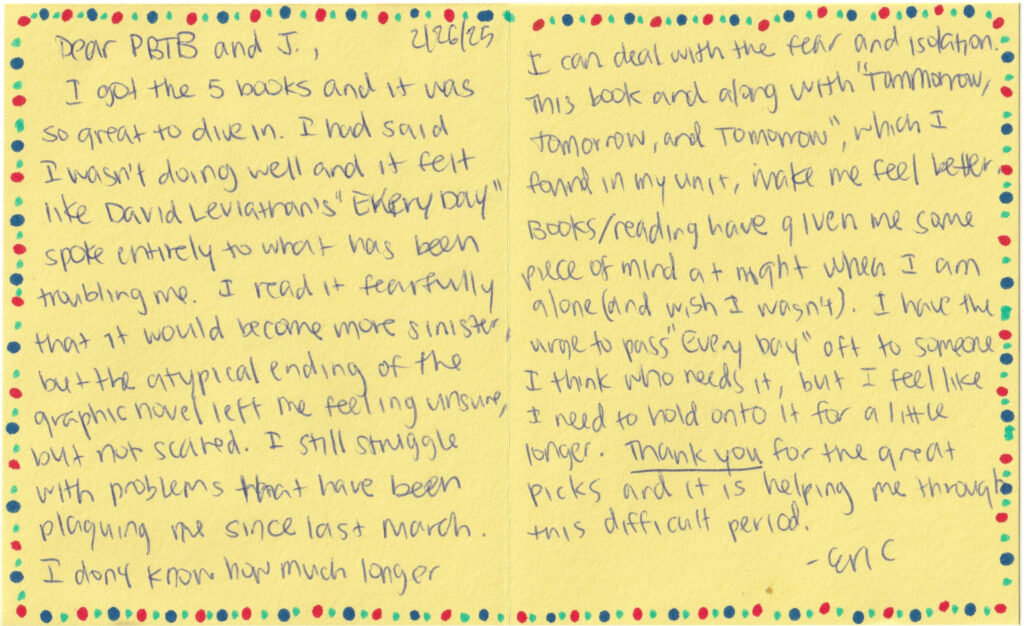 Dear PBTB and J., 2/26/25
I got the 5 books and it was
so great to dive in. I had said
I wasn't doing well and it felt
like David Leviathan's "Every Day"
spoke entirely to what has been
troubling me. I read it fearfully
that it would become more sinister,
but the atypical ending of the
graphic novel left me feeling unsure,
but not scared. I still struggle
with problems that have been
plaguing me since last march.
I don't know how much longer
I can deal with the fear and isolation.
This book and along with "Tommorrow,
Tomorrow, and Tomorrow", which I
found in my unit, make me feel better.
Books/reading have given me some
piece of mind at night when I am
alone (and wish I wasn't). I have the
urge to pass "Every Day" off to someone
I think who needs it, but I feel like
I need to hold onto it for a little
longer. Thank you for the great
picks and it is helping me through
this difficult period.
- Eric